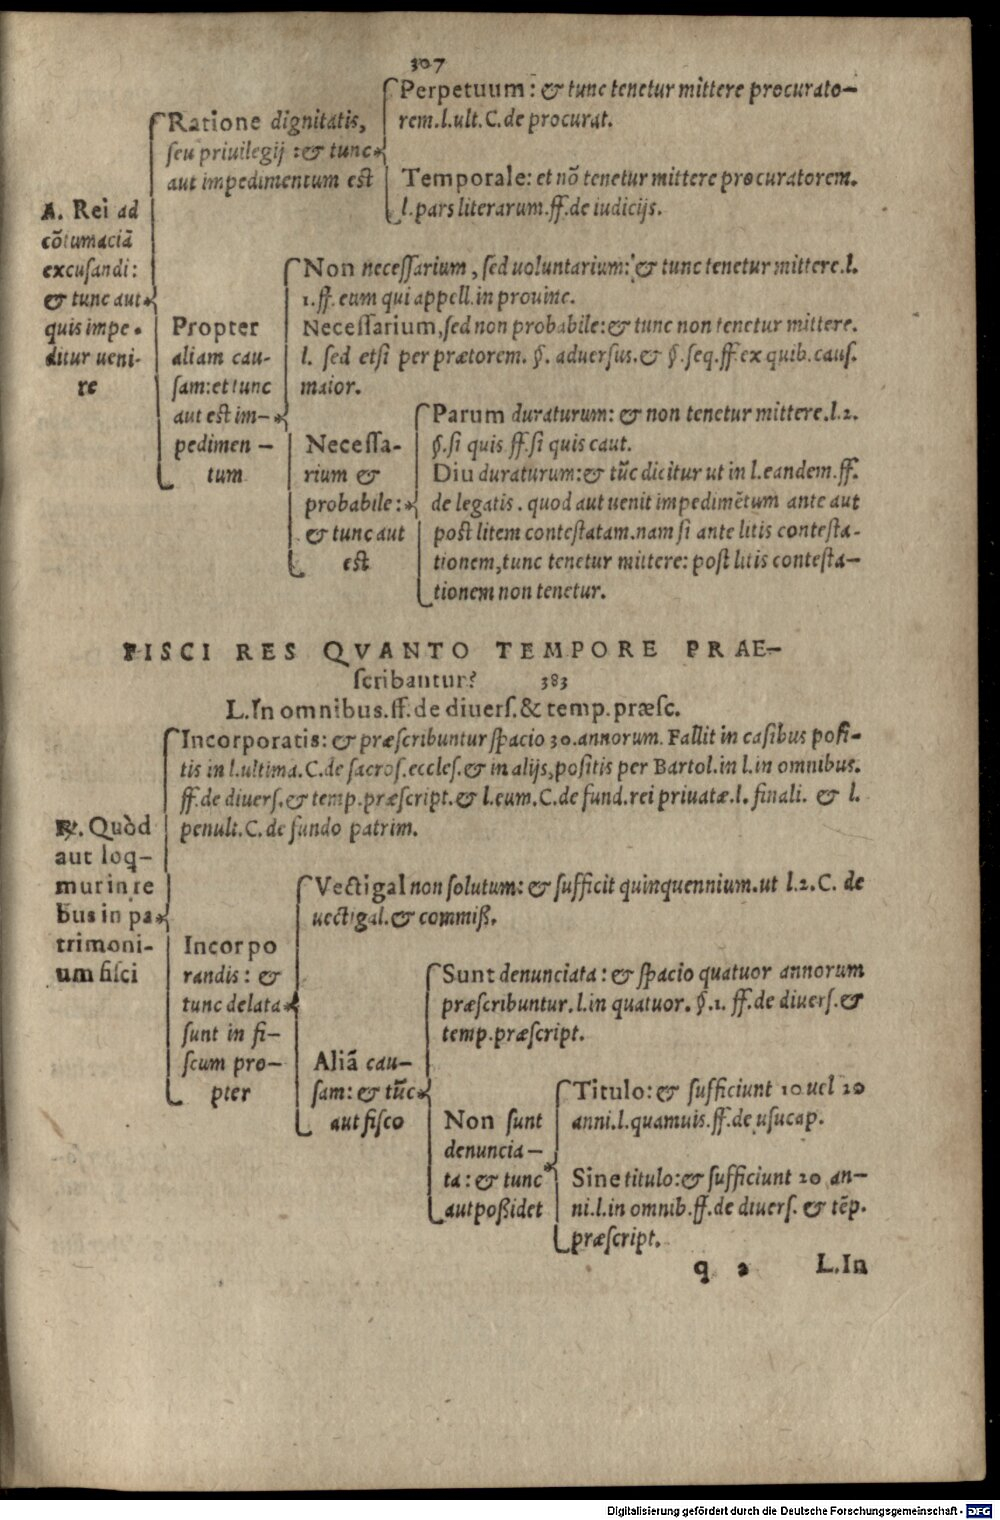 307
A. Rei ad
cōtumaciā
excusandi:
& tunc aut
quis impe-
ditur ueni-
re
Ratione dignitatis,
seu priuilegij :& tunc
aut impedimentum est
Perpetuum: & tunc tenetur mittere procurato-
rem.l.ult.C.de procurat.
Temporale: et nō tenetur mittere procuratorem.
l.pars literarum.ff.de iudicijs.
Propter
aliam cau-
sam:et tunc
aut est im-
pedimen-
tum
Non necessarium, sed uoluntarium: & tunc tenetur mittere.l.
1.ff. eum qui appell.in prouinc.
Necessarium, sed non probabile:& tunc non tenetur mittere.
l. sed etsi per prætorem. §. aduersus.& §.seq.ff.ex quib.caus.
maior.
Necessa-
rium &
probabile:
& tunc aut
est
Parum duraturum: & non tenetur mittere.l.2.
§.si quis ff.si quis caut.
Diu duraturum:& tūc dicitur ut in l.eandem.ff.
de legatis. quod aut uenit impedimētum ante aut
post litem contestatam.nam si ante litis contesta-
tionem,tunc tenetur mittere: post litis contesta-
tionem non tenetur.
FISCI RES QVANTO TEMPORE PRAE-
scribantur? 383
L.In omnibus.ff.de diuers.& temp.præsc.
℞. Quòd
aut loq-
mur in re
bus in pa
trimoni-
um fisci
Incorporatis: & præscribuntur spacio 30.annorum. Fallit in casibus posi-
tis in l.ultima.C.de sacros.eccles.& in alijs,positis per Bartol.in l.in omnibus.
ff.de diuers.& temp.præscript.& l.cum.C.de fund.rei priuatæ.l. finali. & l.
penult.C.de fundo patrim.
Incorpo
randis: &
tunc delata
sunt in fi-
scum pro-
pter
Vectigal non solutum: & sufficit quinquennium.ut l.2.C. de
uectigal.& commiß.
Aliā cau-
sam: & tūc
aut fisco
Sunt denunciata: & spacio quatuor annorum
præscribuntur.l.in quatuor. §.1. ff.de diuers.&
temp.præscript.
Non sunt
denuncia-
ta: & tunc
aut poßidet
Titulo: & sufficiunt 10 uel 20
anni.l.quamuis.ff.de usucap.
Sine titulo:& sufficiunt 20 an-
ni.l.in omnib.ff.de diuers. & tēp.
præscript.
q 2 L.In
Digitalisierung gefördert durch die Deutsche Forschungsgemeinschaft - DFG